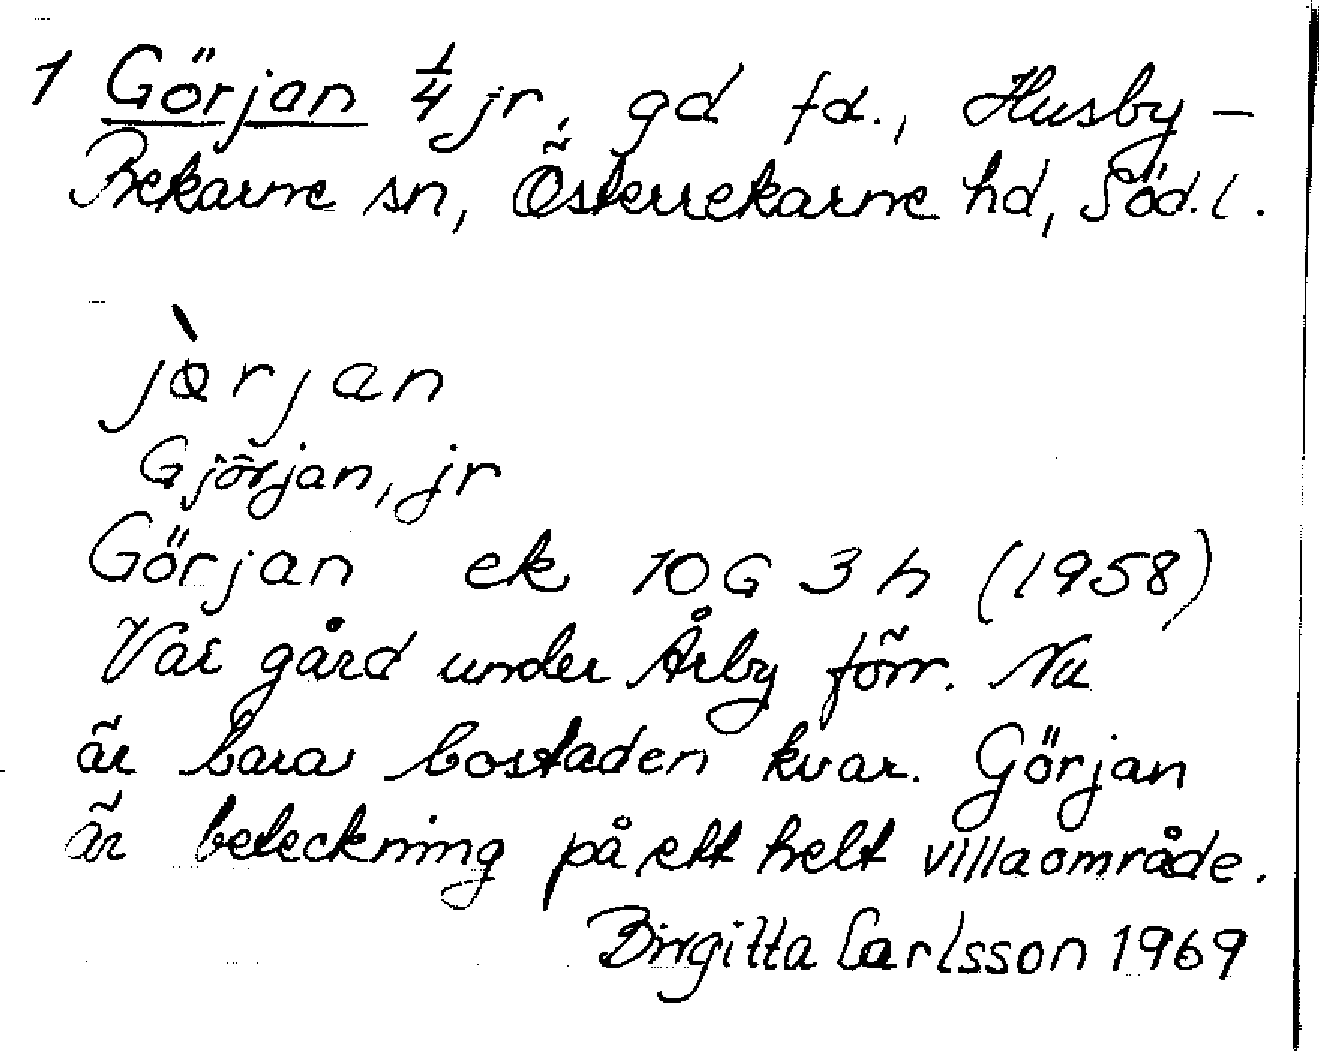 1 Görjan 1/4 jr, gd fd., Husby-
Rekarne sn, Österrekarne hd, Söd.l.
jȯ̠̀rjan
Gjörjan, jr
Görjan ek 10G 3h (1958)
Var gård under Årby förr. Nu
är bara bostaden kvar. Görjan
är beteckning på ett helt villaområde.
Birgitta Carlsson 1969